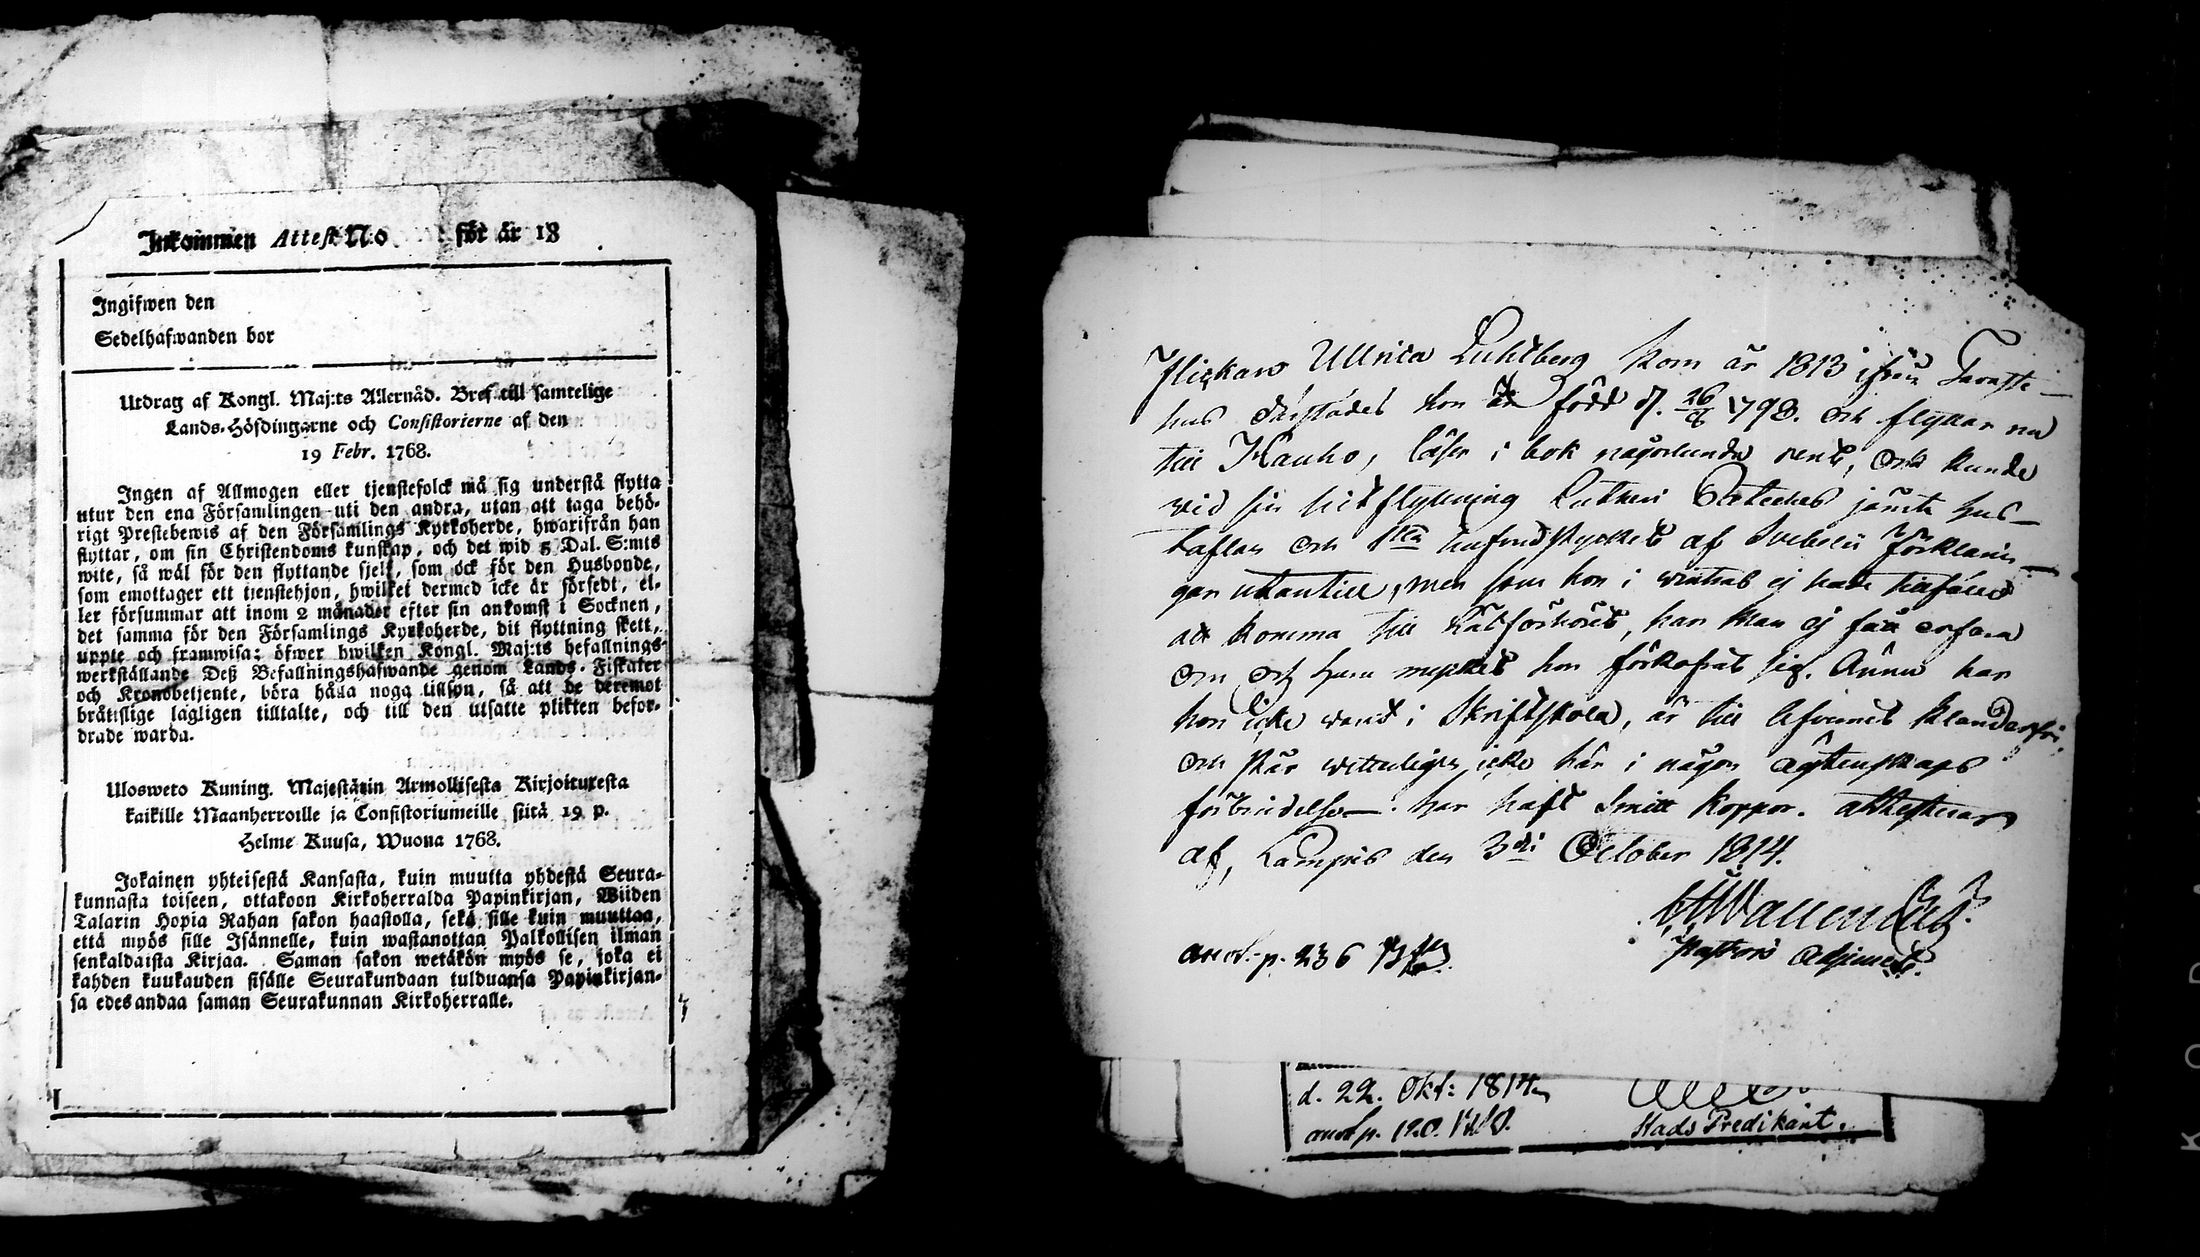 Inkommen Attest No för år 18
Ingifwen den
Sedelhafwanden bor
Utdrag af Kongl. Maj:ts Allernåd. Bref till samtelige
Lands-Höfdingarne och Consistorierne af den
19 Febr. 1768.
Ingen af Allmogen eller tjenstefolck må sig understå flytta
utur den ena Församlingen uti den andra, utan att taga behö-
rigt Prestebewis af den Församlings Kyrkoherde, hwarifrån han
flyttar, om sin Christendoms kunskap, och det wid 5 Dal. S:mts
wite, så wäl för den flyttande sjelf, som ock för den Husbonde,
som emottager ett tjenstehjon, hwilket dermed icke är försedt, el-
ler försummar att inom 2 månader efter sin ankomst i Socknen,
det samma för den Församlings Kyrkoherde, dit flyttning skett,
uppte och framwisa: öfwer hwilken Kongl. Maj:ts befallnings-
werkställande Deß Befallningshafwande genom Lands-Fiskaler
och Kronobetjente, böra hålla noga tillsyn, så att de deremot
brätslige lagligen tilltalte, och till den utsatte plikten befor-
drade warda.
Ulosweto Kuning. Majestätin Armollisesta Kirjoituresta
kaikille Maanherroille ja Consistoriumeille siitä 19 p.
Helme Kuusa, Wuona 1768.
Jokainen yhteisestä Kansasta, kuin muutta yhdestä Seura-
kunnasta toiseen, ottakoon Kirkoherralda Papinkirjan, Wiiden
Talarin Hopia Rahan sakon haastolla, sekä sille kuin muuttaa,
että myös sille Isännelle, kuin wastanottan Palkollisen ilman
senkaldaista Kirjaa. Saman sakon wetäkön myös se, joka ei
kahden kuukauden sisälle Seurakundaan tulduansa Papinkirjan-
sa edesandaa saman Seurakunnan Kirkoherralle.
Flickan Ullrica Luhlberg kom år 1813 ifrån Tavaste-
hus hon är född d. 26 1798. och flyttar nu
till Kauho, läser i bok någorlunda rent, och kunde
vid sin hitflyttning Lutheri Cateches jämte Hus-
taflan och 1sta hufvudstycket af Svebelii Förklarin-
gen utantill, men som hon i vintras ej hade
att komma till Läsförhöret, kan man ej få erfara
om och huru mycket hon förkofrat sig. Ännu har
hon icke varit i Skriftskola, är till lefvernet klanderfri,
och står vitterligen icke här i någon ägtenskaps
förbindelse. har haft Smitt Koppor. attesteras
af, Lampis den 3di October 1814.
Wallen
Pastors Adjunct.
anot. p. 236
d. 22. Okt: 1814
anot p. 120.
Stads Predikant.